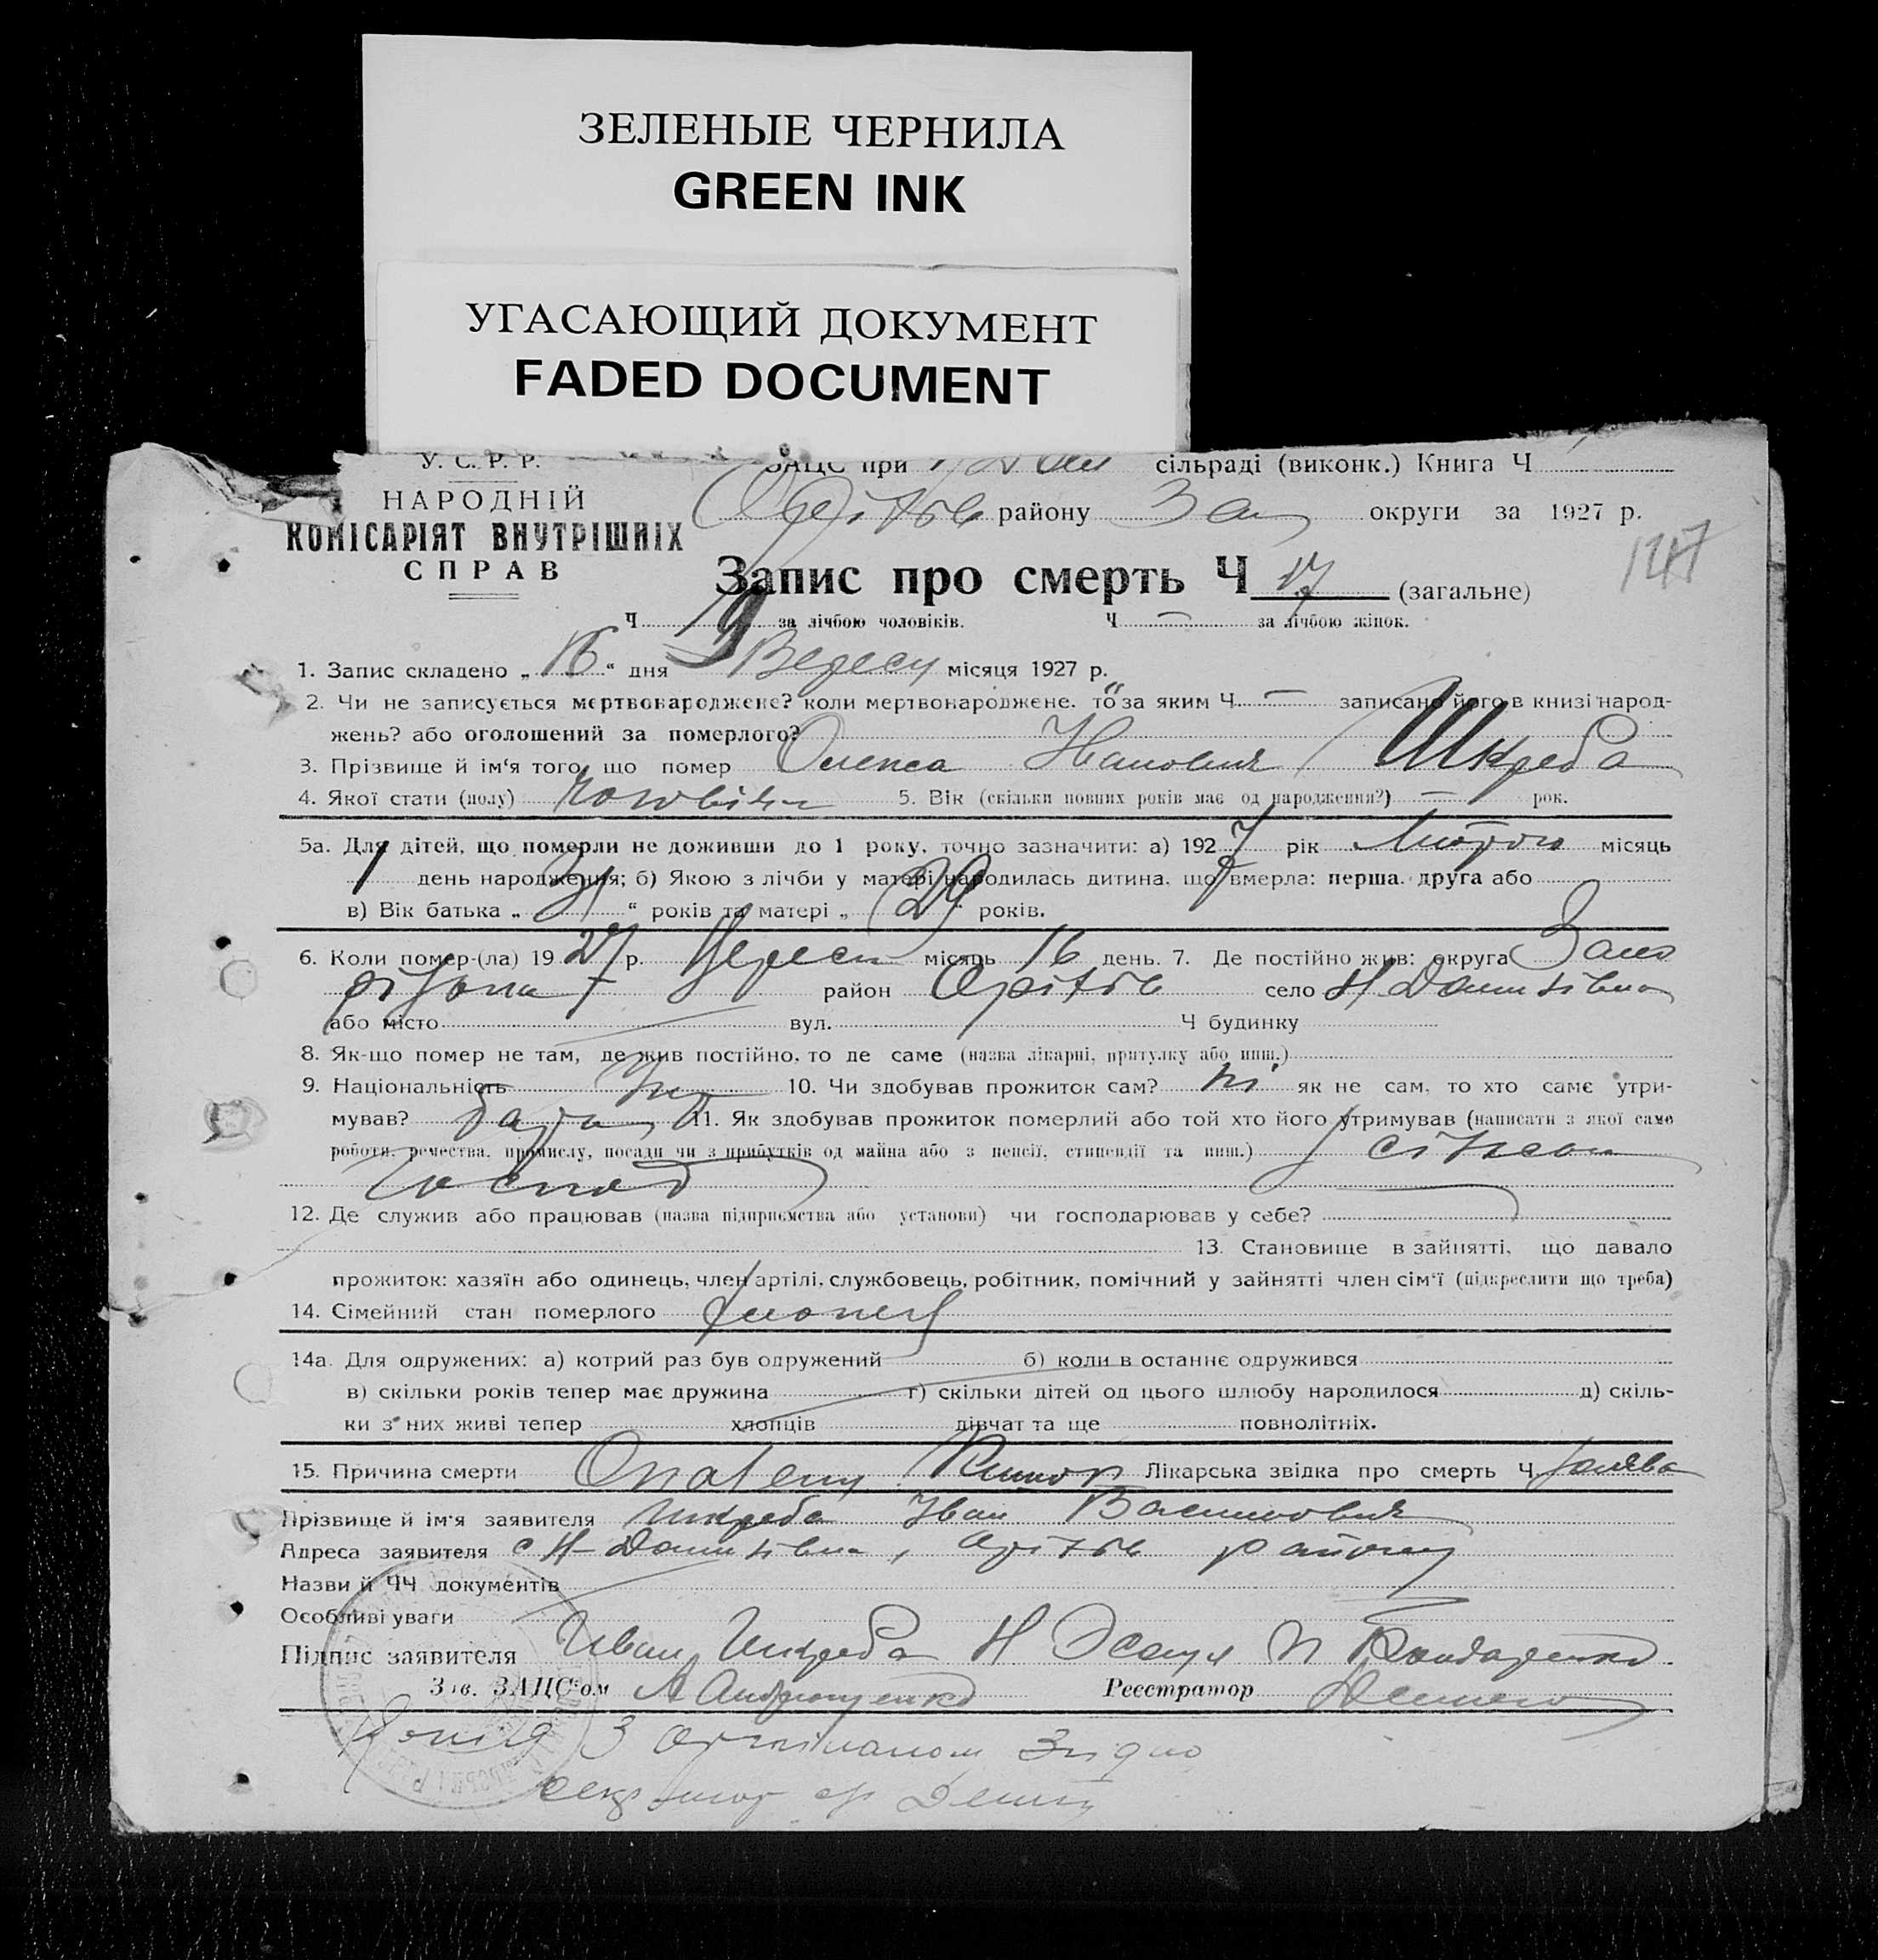 ЗЕЛЕНЫЕ ЧЕРНИЛА
GREEN INK
УГАСАЮЩИЙ ДОКУМЕНТ
FADED DOCUMENT
У. С. Р. Р. ЗАЦС при сільраді (виконк.) Книга Ч
НАРОДНІЙ
району Зап округи за 1927 р.
КОМІСАРІЯТ ВНУТРІШНІХ
СПРАВ
147
Запис про смерть Ч 17 (загальне)
Ч 19 за лічбою чоловіків. Ч — за лічбою жінок.
1. Запис складено „ 16 “ дня Вересн місяця 1927 р.
2. Чи не записується мертвонароджене? коли мертвонароджене, то за яким Ч — записано його в книзі народ-
жень? або оголошений за померлого?
3. Прізвище й ім'я того, що помер Олекса Іванович Шкреба
4. Якої стати (полу) чоловічи 5. Вік (скільки повних років має од народження?) — рок.
5а. Для дітей, що померли не доживши до 1 року, точно зазначити: а) 1927 рік Лютого місяць
1 день народження; б) Якою з лічби у матері народилась дитина, що вмерла: перша, друга або
в) Вік батька „ 31 “ років та матері „ 29 “ років.
6. Коли помер-(ла) 1927 р. Вересн місяць 16 день. 7. Де постійно жив: округа Запо
ріжжа район Оріхів село Н Данилівна
або місто вул. Ч будинку
8. Як-що помер не там, де жив постійно, то де саме (назва лікарні, притулку або инш.)
9. Національність Укр 10. Чи здобував прожиток сам? ні як не сам, то хто саме утри-
мував? батьки 11. Як здобував прожиток померлий або той хто його утримував (написати з якої саме
роботи, ремества, промислу, посади чи з прибутків од майна або з пенсії, стипендії та инш.) сільськ
господ
12. Де служив або працював (назва підприємства або установи) чи господарював у себе?
13. Становище в зайнятті, що давало
прожиток: хазяїн або одинець, член артілі, службовець, робітник, помічний у зайнятті член сім'ї (підкреслити що треба)
14. Сімейний стан померлого хлопець
14а. Для одружених: а) котрий раз був одружений б) коли в останнє одружився
в) скільки років тепер має дружина г) скільки дітей од цього шлюбу народилося д) скіль-
ки з них живі тепер хлопців дівчат та ще повнолітніх.
15. Причина смерти Лікарська звідка про смерть Ч. заява
Прізвище й ім'я заявителя Шкреба Іван Васильович
Адреса заявителя с Н-Данилівна, Оріхів району
Назви й ЧЧ документів
Особливі уваги
Підпис заявителя Иван Шкреба Н Эсаул П Бондаренко
Зав. ЗАЦС'ом А Андрющенко Реєстратор
Копія З оргіналом Згідно
секретар с/р